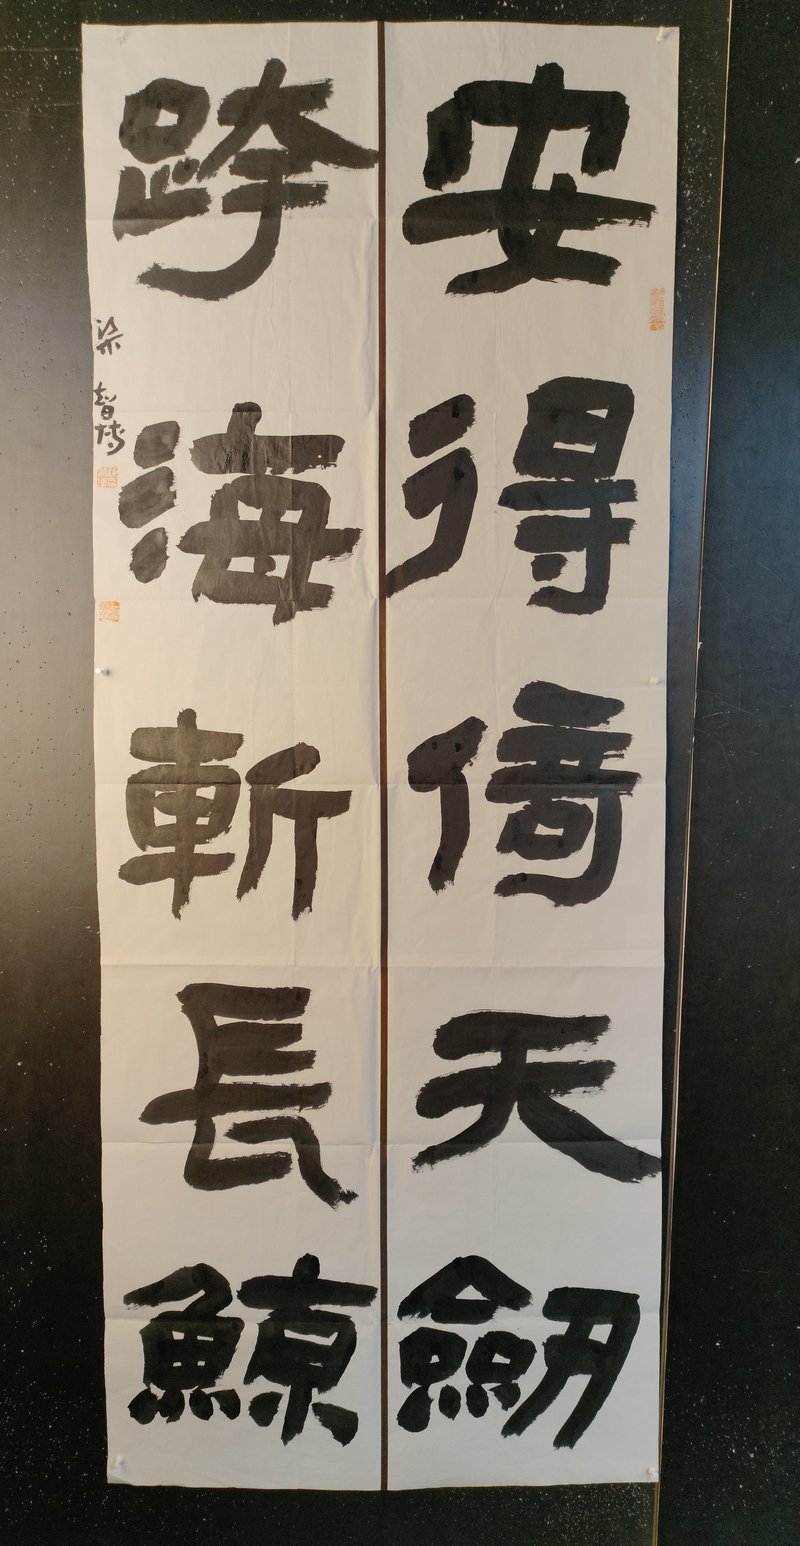 安得倚天劒
跨海斬長鯨
梁智博